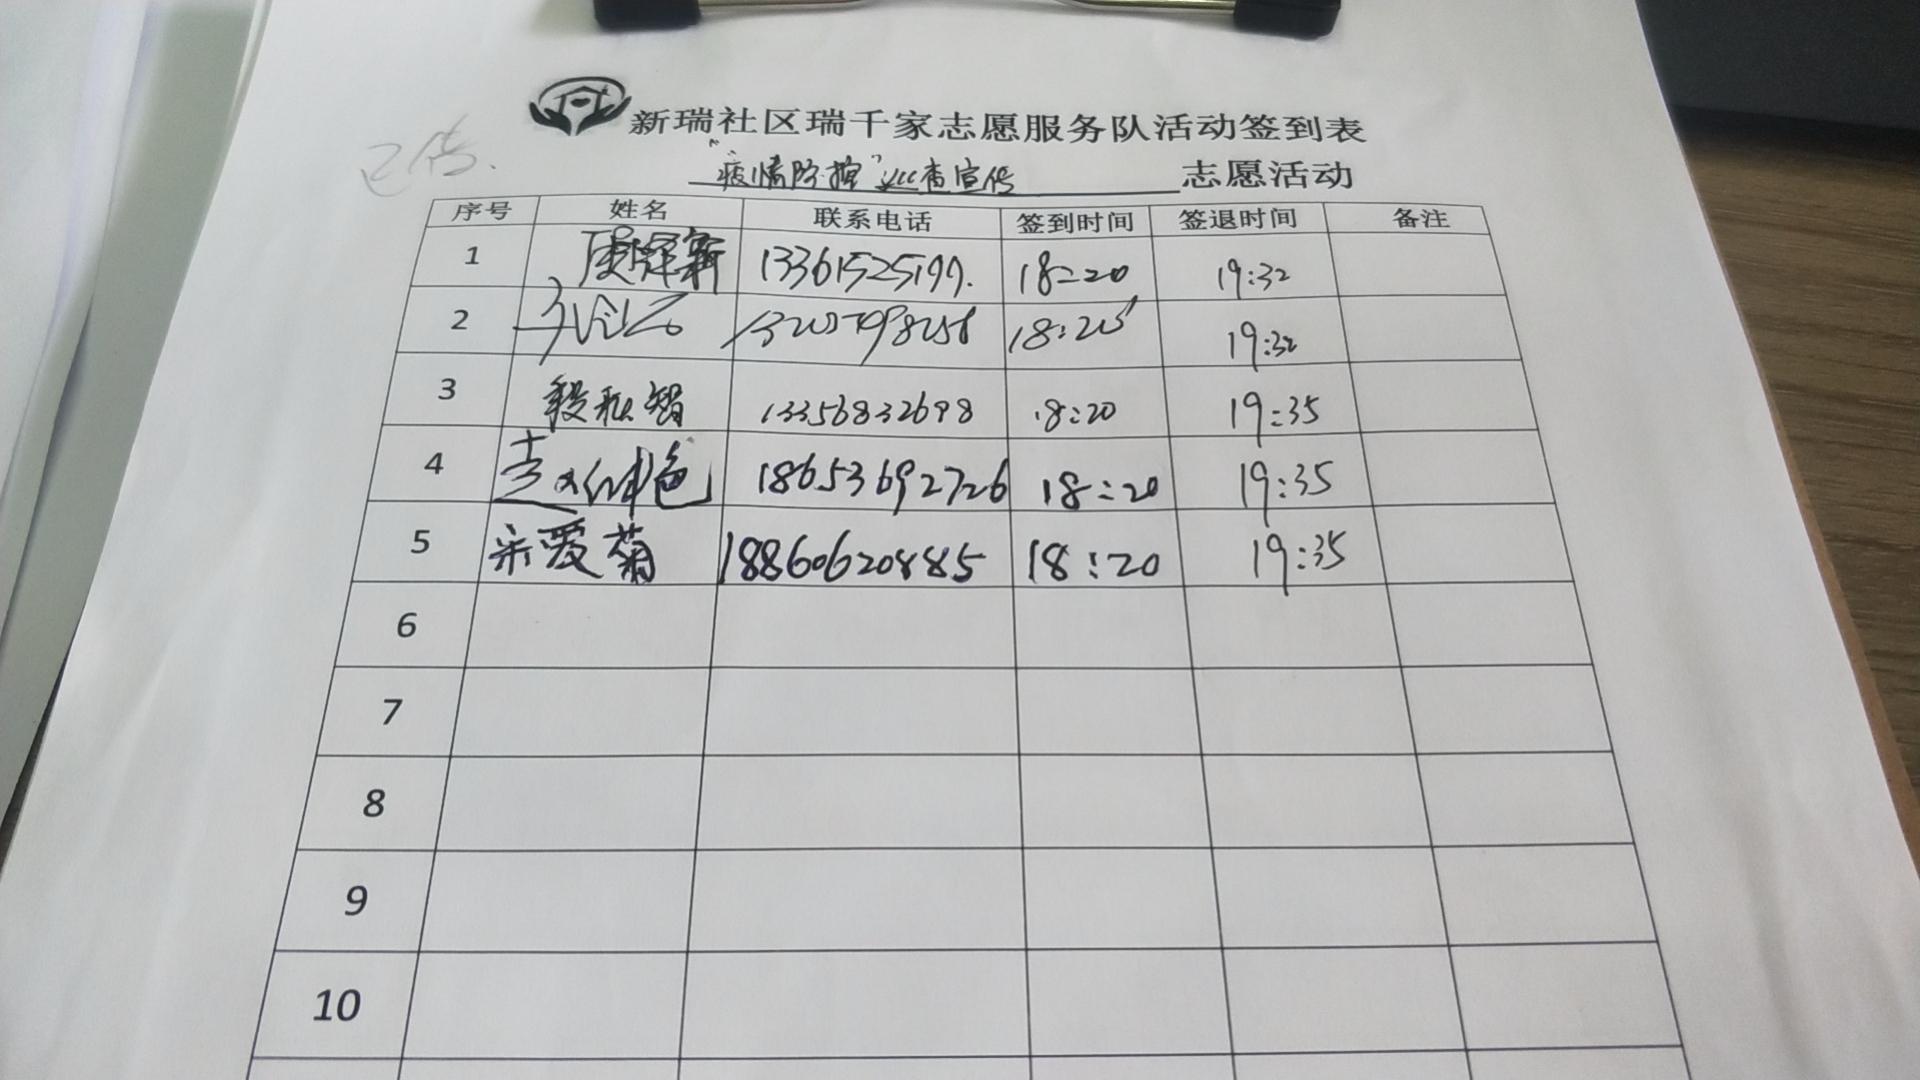 新瑞社区瑞千家志愿服务队活动签到表
已传.
"疫情防控"巡查宣传 志愿活动
序号 姓名 联系电话 签到时间 签退时间 备注
1 13361525199. 18:20 19:32
2 18:20 19:32
3 13356832698 18:20 19:35
4 18653692726 18:20 19:35
5 宋爱菊 18860620885 18:20 19:35
6
7
8
9
10